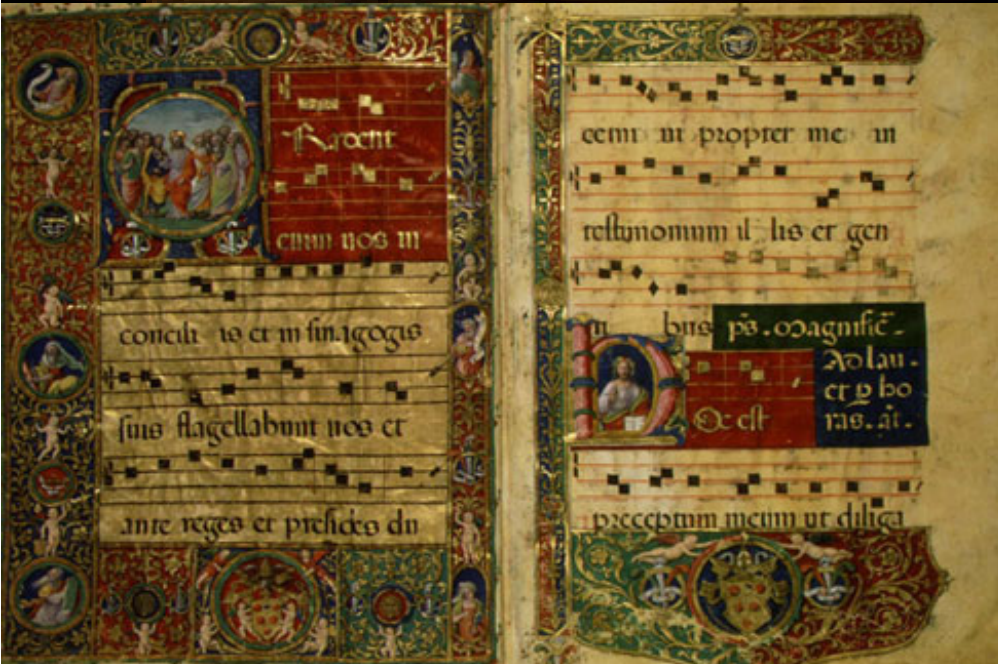 TRadent
enim uos in
concili is et in sinagogis
suis flagellabunt uos et
ante reges et presides du
cemi ni propter me in
testimonium il lis et gen
ti bus p̄s. Magnific̄.
Ad lau.
et ꝑ ho
ras. an̄.
HOc est
preceptum meum ut diliga